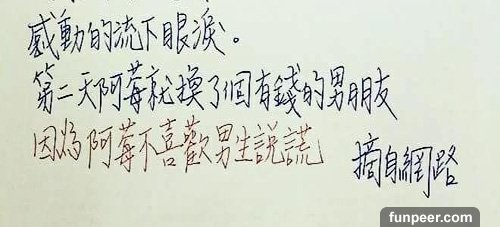 感動的流下眼淚。
第二天阿莓就換了個有錢的男朋友
因為阿莓不喜歡男生說謊
摘自網路
funpeer.com